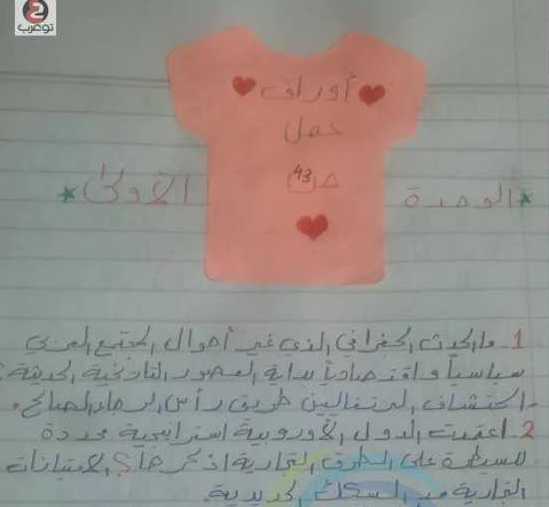 توعرب
أوراق
عمل
ص43
الوحدة الأولى
1- ما الحدث الجغرافي الذي غير أحوال المجتمع العربي
سياسياً واقتصادياً بداية العصور التاريخية الحديثة؟
اكتشاف البرتغاليين طريق رأس الرجاء الصالح.
2. اعتمدت الدول الأوروبية استراتيجية محددة
للسيطرة على الطرق التجارية اذكرها؟ الامتيازات
التجارية مد السكك الحديدية.